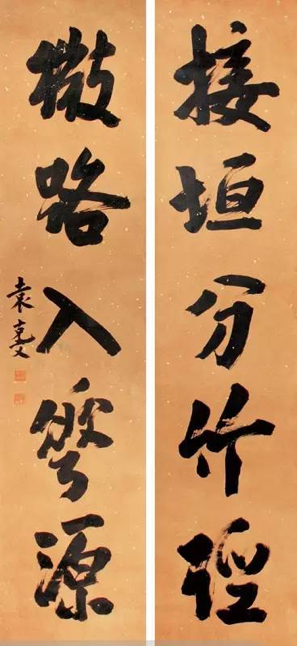 接垣分竹徑
微路入花源
袁克文